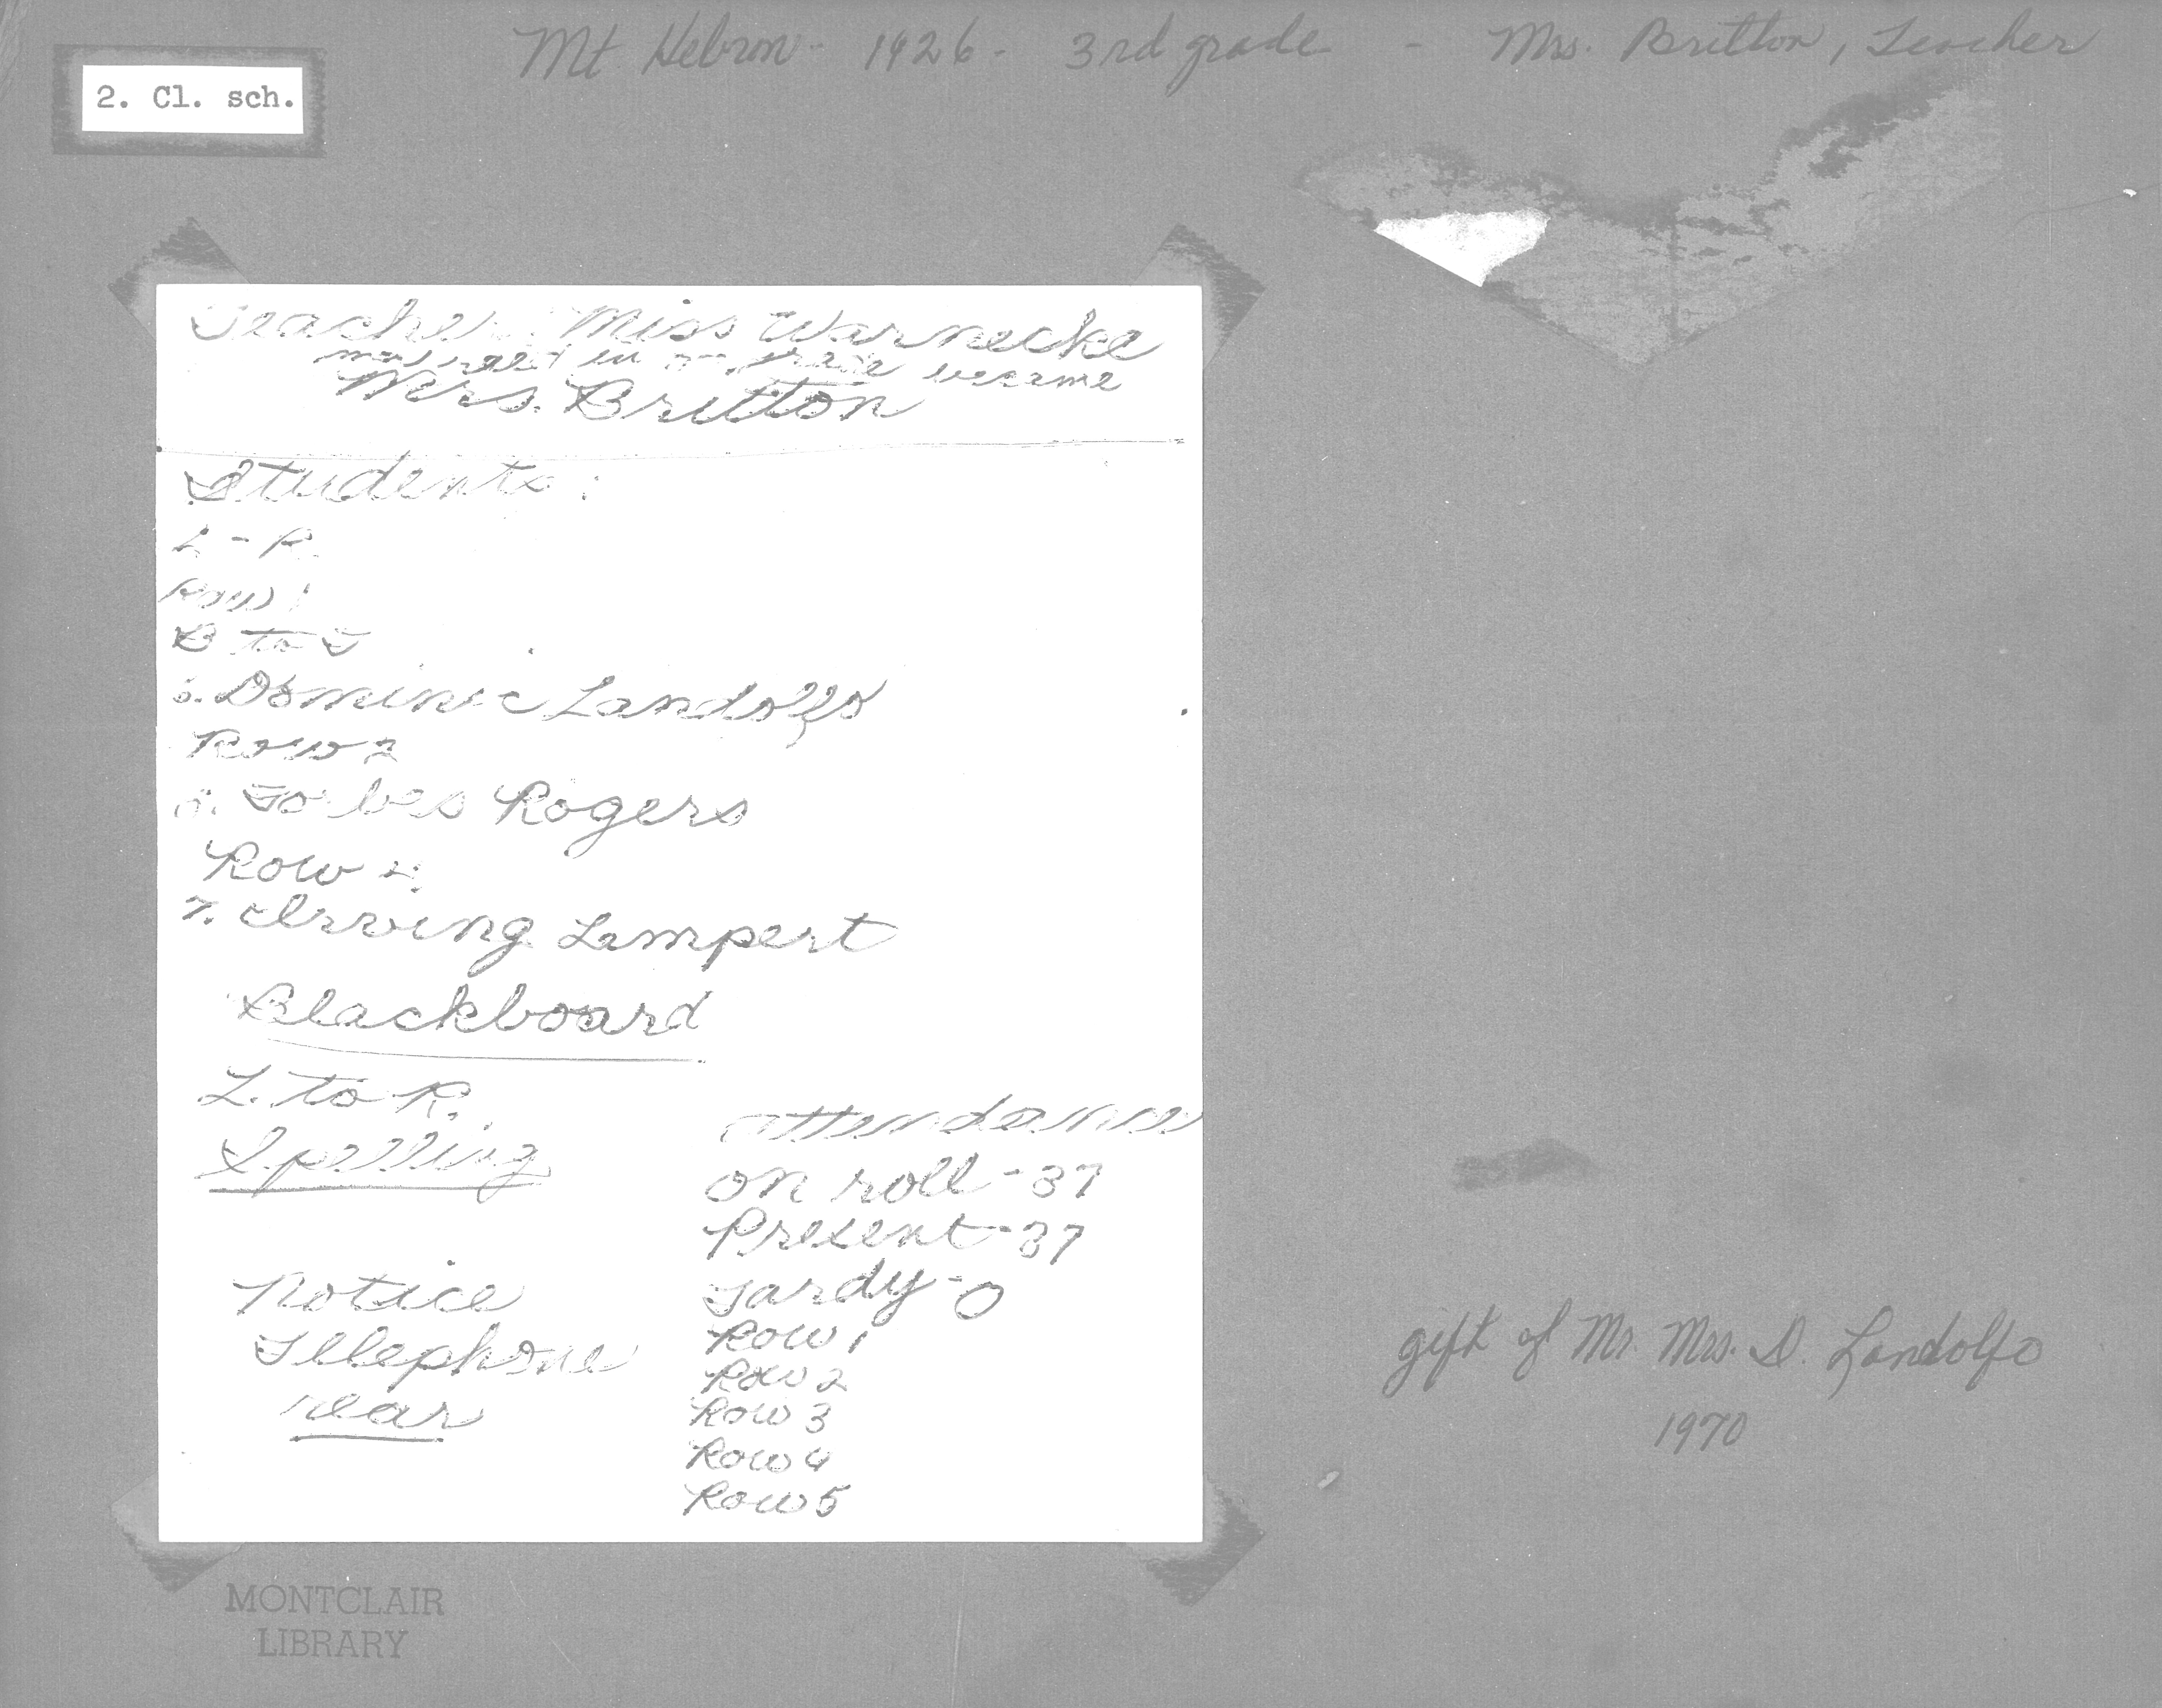 Mt. Hebron - 1926 - 3rd grade - Mrs. Britton, Teacher
2. Cl. sch.
Teacher: Miss Warnecke
married in 3rd grade became
Mrs. Britton
Students:
L - R.
Row 1
B to T
Dominic Landolfo
Row 2
Forbes Rogers
Row 4
7. Irving Lampert
Blackboard
L. to R.
Spelling
Attendance
on roll - 37
Present - 37
Tardy - 0
Row 1
Row 2
Row 3
Row 4
Row 5
Notice
Telephone
rear
gift of Mr. Mrs. D. Landolfo
1970
MONTCLAIR
LIBRARY